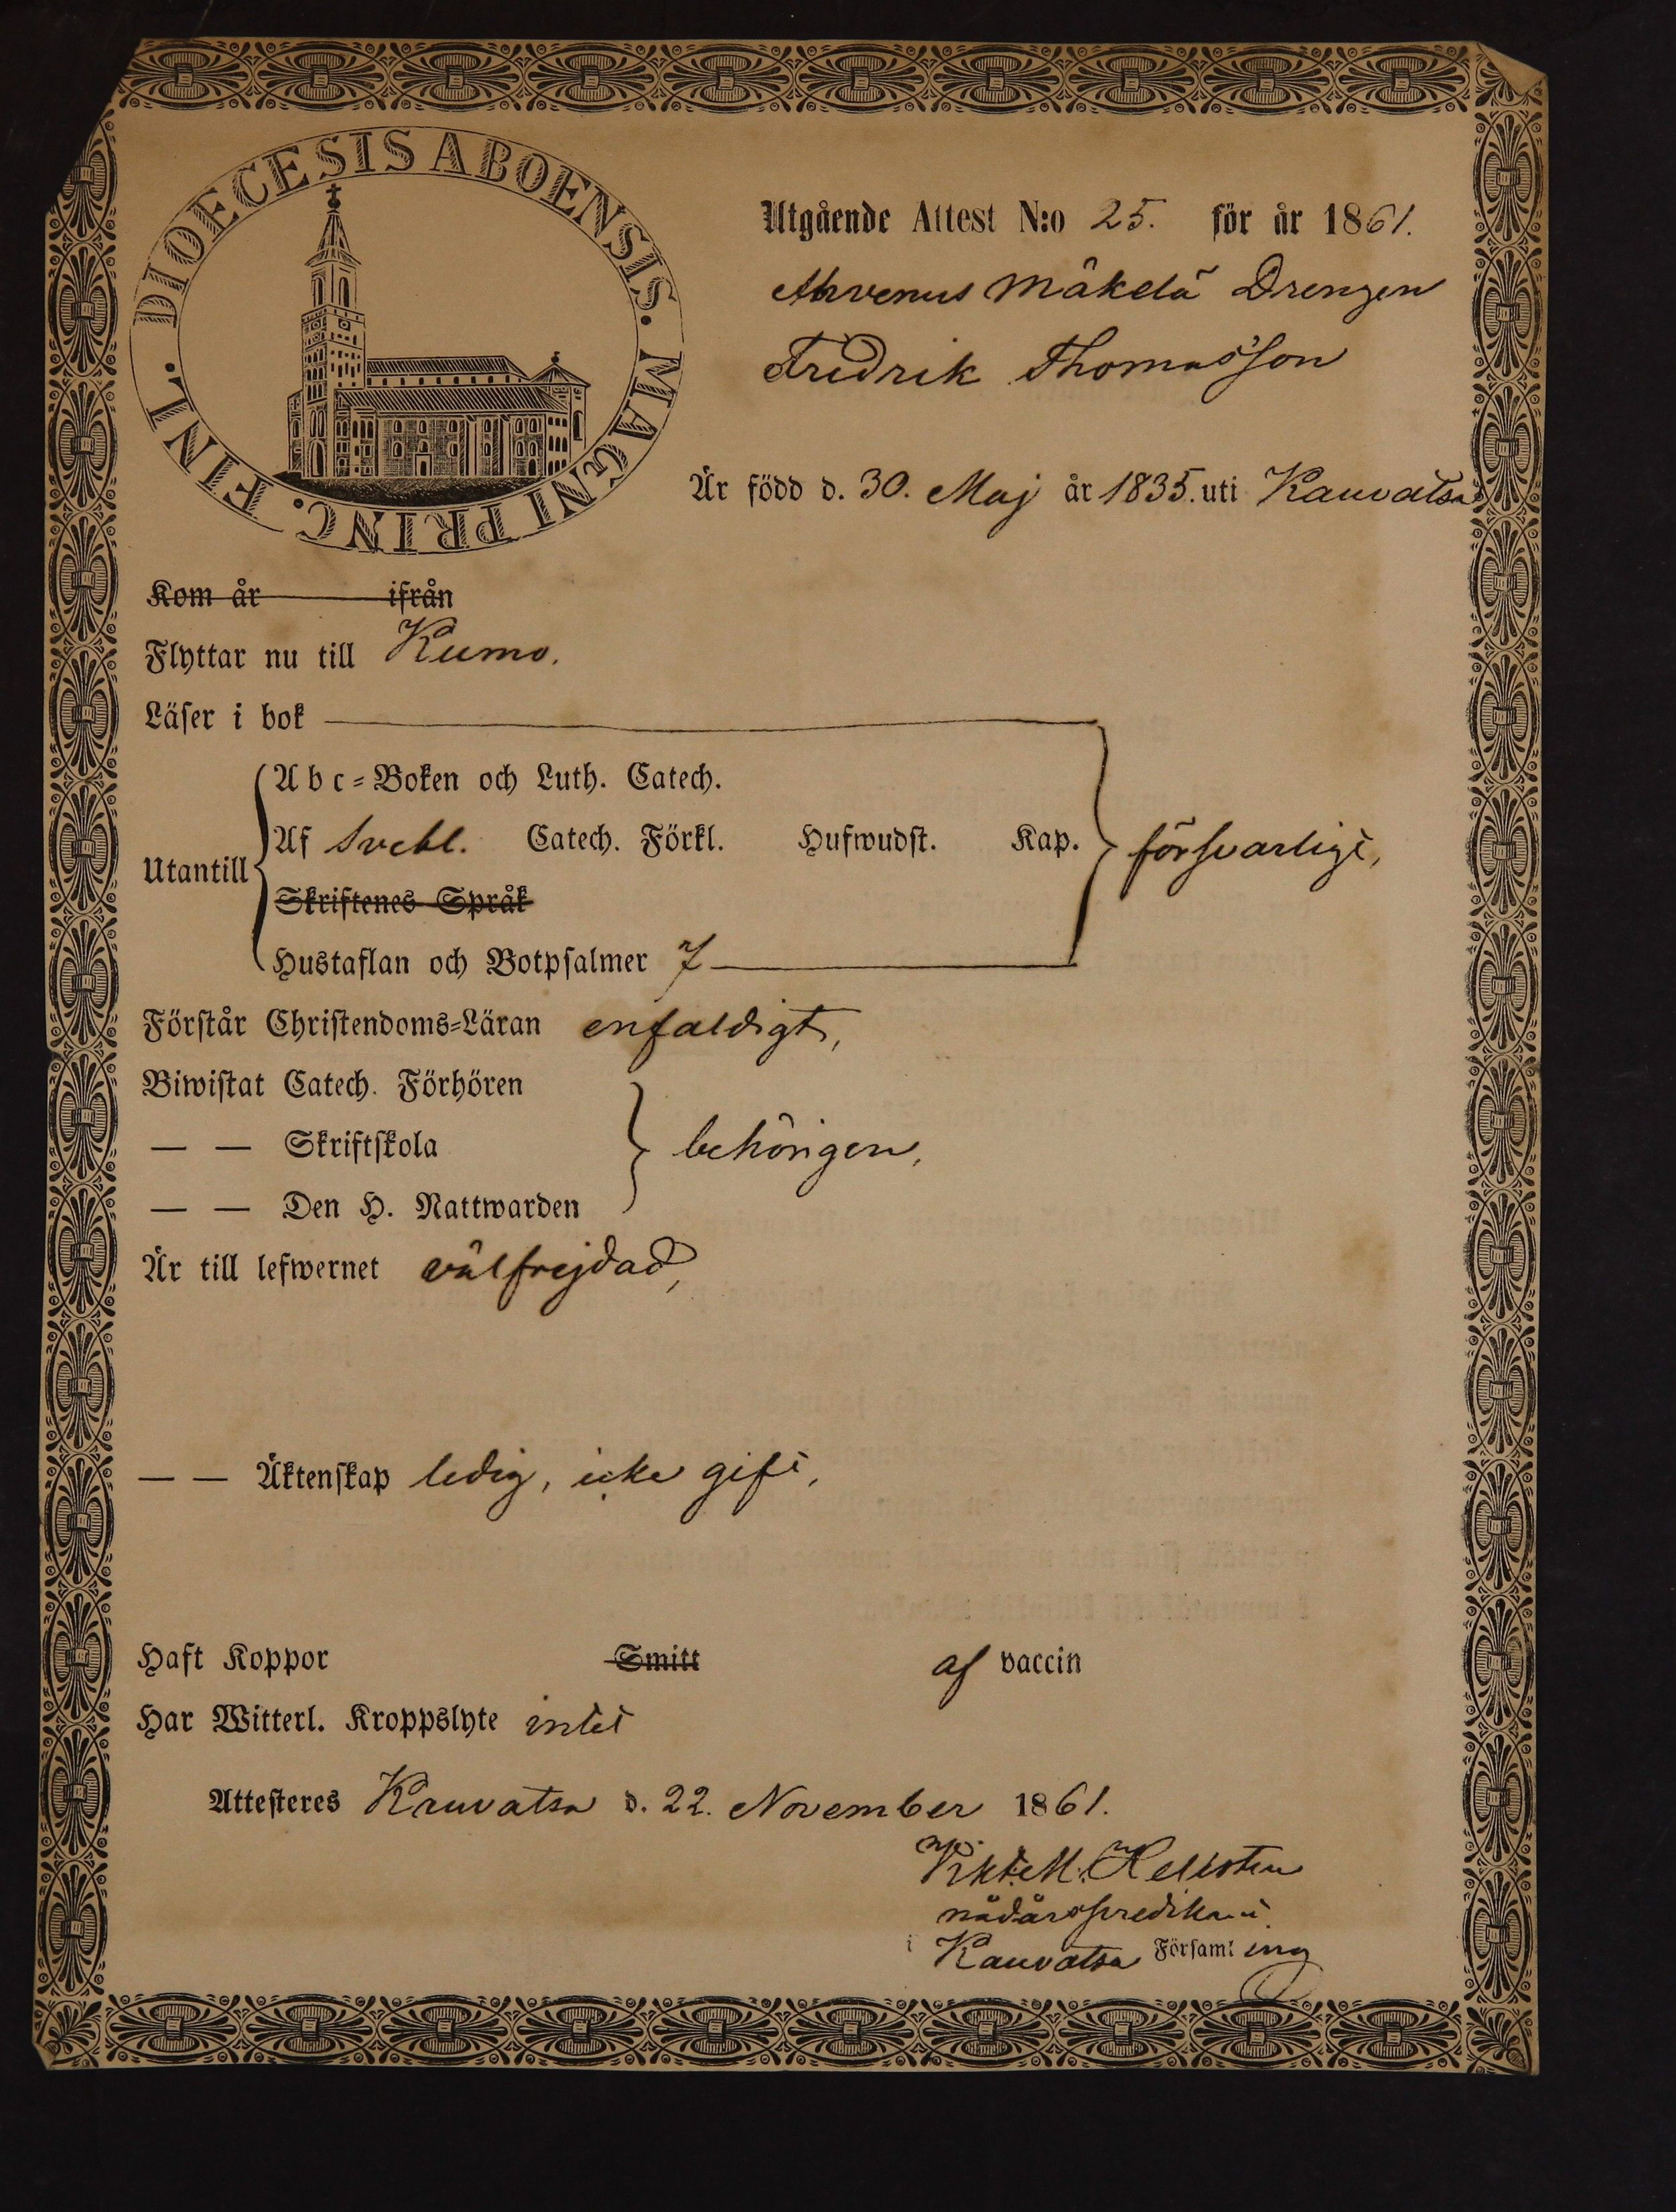 DIOECESIS ABOENSIS. MAGNI PRINC. FINL.
Utgående Attest N:o 25. för år 1861.
Ahvenus Mäkelä Drengen
Fredrik Thomasson
Är född d. 30. Maj år 1835. uti Kauvatsa
Kom år ifrån
Flyttar nu till Kumo.
Läser i bok
Abc-Boken och Luth. Catech.
Utantill Af Svebl. Catech. Förkl. Hufwudst. Kap. försvarligt,
Skriftenes Språk
Hustaflan och Botpsalmer 7
Förstår Christendoms-Läran enfaldigt,
Biwistat Catech. Förhören
— — Skriftskola behörigen,
— — Den H. Nattwarden
Är till lefwernet välfrejdad,
— — Äktenskap ledig, icke gift,
Haft Koppor Smitt af vaccin
Har Witterl. Kroppslyte intet
Attesteres Kauvatsa d. 22. November 1861.
Hellsten
nådårspredikant
i Kauvatsa Församl ing